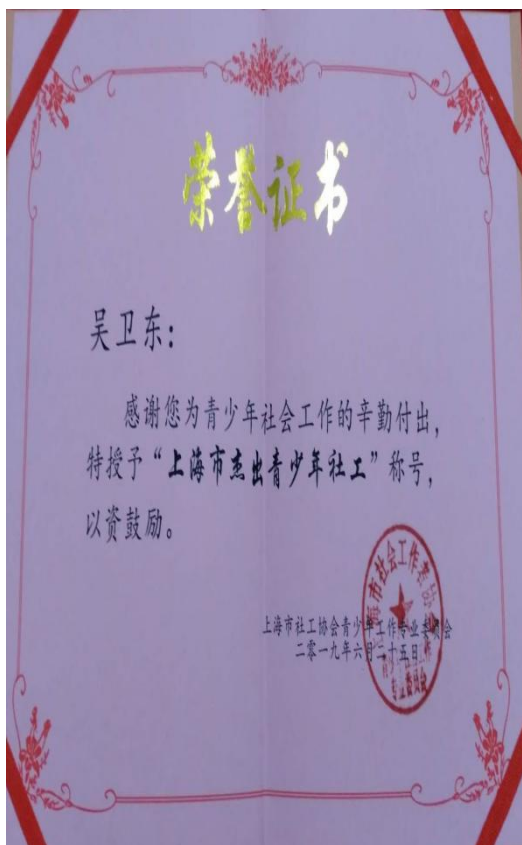 荣誉证书
吴卫东：
感谢您为青少年社会工作的辛勤付出，
特授予“上海市杰出青少年社工”称号，
以资鼓励。
上海市社工协会青少年工作专业委员会
二零一九年六月二十五日